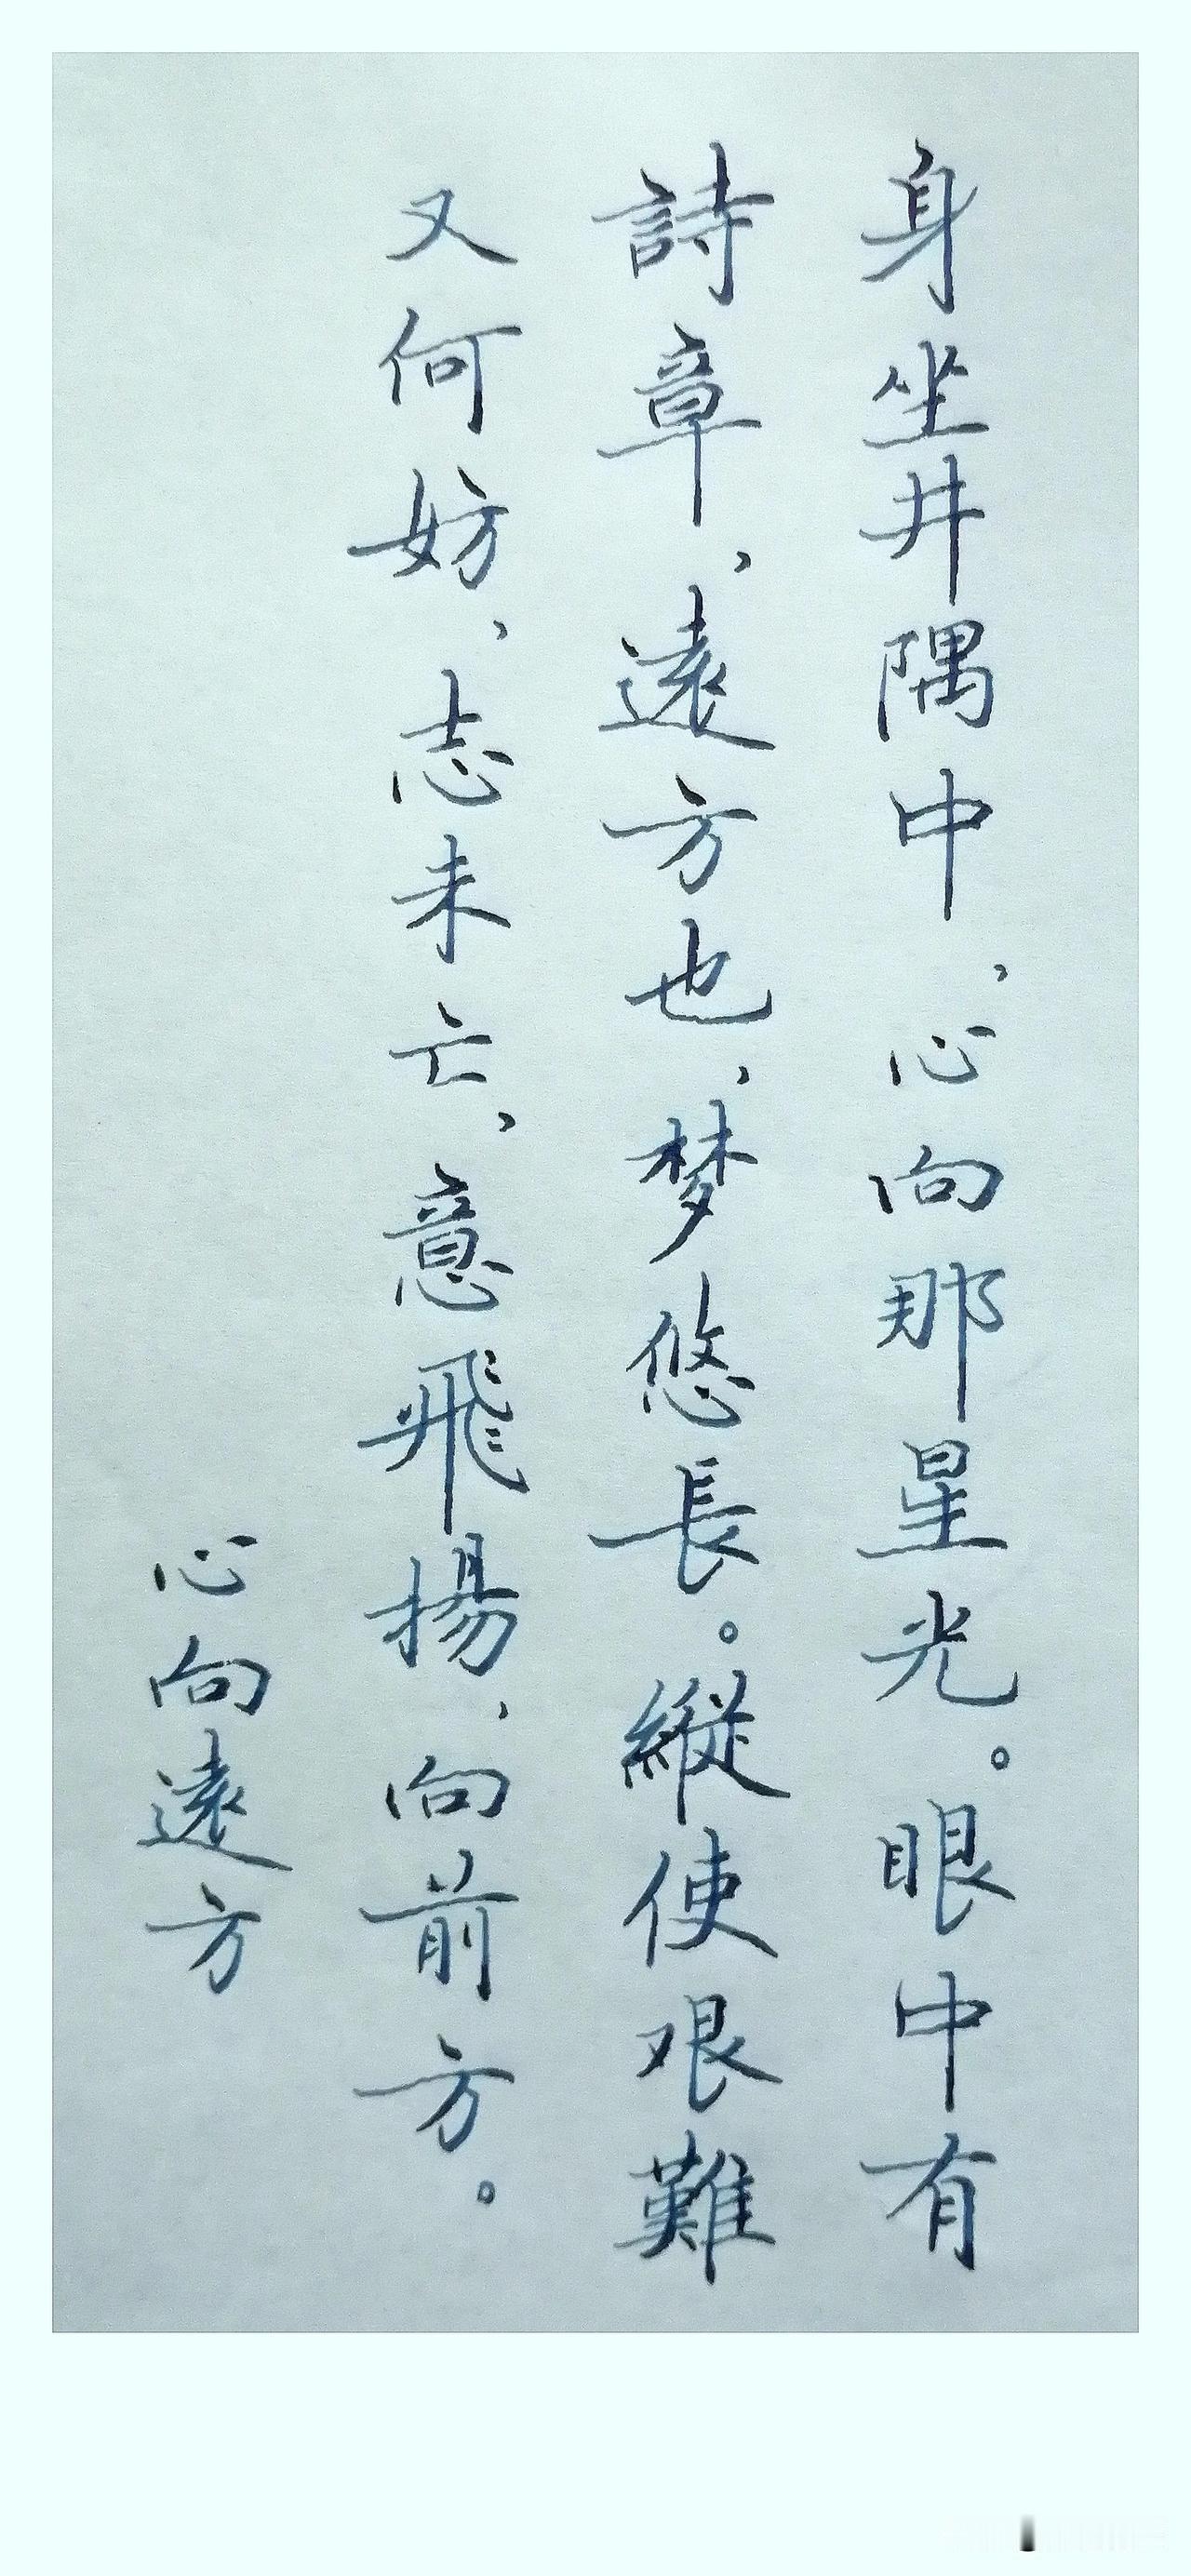 身坐井隅中，心向那星光。眼中有
詩章，遠方也，梦悠長。縱使艰難
又何妨，志未亡，意飛揚，向前方。
心向遠方